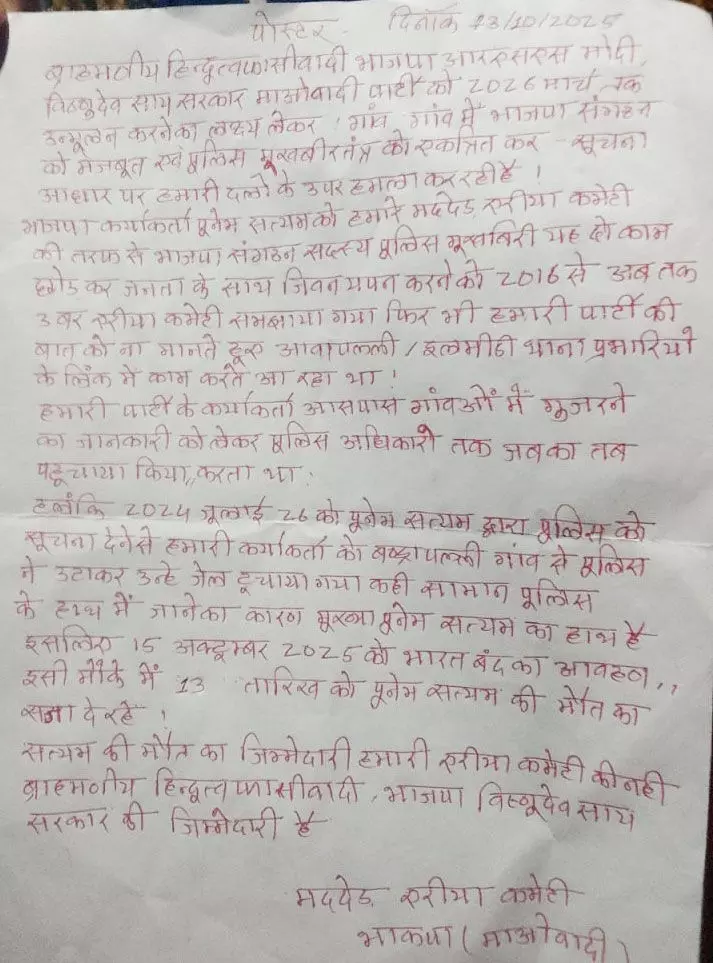 पोस्टर दिनाँक 13/10/2025
ब्राहमणीय हिन्दुत्वफासीवादी भाजपा आरएसएस मोदी,
विष्णुदेव साय सरकार माओवादी पार्टी को 2026 मार्च तक
उन्मूलन करनेका लक्ष्य लेकर। गांव गांव में भाजपा संगठन
को मजबूत एवं पुलिस मूखबीरतंत्र को एकत्रित कर - सूचना
आधार पर हमारी दलो के उपर हमला कर रही है।
भाजपा कर्याकर्ता पूनेम सत्यमको हमारे मददेड एरीया कमेटी
की तरफ से भाजपा संगठन सदस्य पुलिस मूखबिरी यह दो काम
छोड कर जनता के साथ जिवन यपन करने को 2016 से अब तक
3 बर एरीया कमेटी समझाया गया फिर भी हमारी पार्टी की
बात को ना मानते हूए आवापल्ली/इलमीडी थाना प्रभारियो
के लिंक में काम करते आ रहा था।
हमारी पार्टी के कर्याकर्ता आसपास गांवओं में गुजरने
का जानकारी को लेकर पुलिस अधिकारी तक जबका तब
पहूचाया किया,, करता था।
हलांकि 2024 जूलाई 26 को पूनेम सत्यम द्वारा पुलिस को
सूचना देने से हमारी कर्याकर्ता को गांव से पुलिस
ने उटाकर उन्हे जेल दूचाया गया कही सामान पुलिस
के हाथ में जानेका कारण पूनेम सत्यम का हाथ है
इसलिए 15 अक्टूम्बर 2025 को भारत बंद का आवहन,,
इसी मौके में 13 तारिख को पूनेम सत्यम की मौत का
सजा दे रहे।
सत्यम की मौत का जिम्मेदारी हमारी एरीया कमेटी की नही
ब्राहमणीय हिन्दुत्व फासीवादी, भाजपा विष्णूदेव साय
सरकार की जिम्मेदारी है
मददेड एरीया कमेटी
भाकपा (माओवादी)